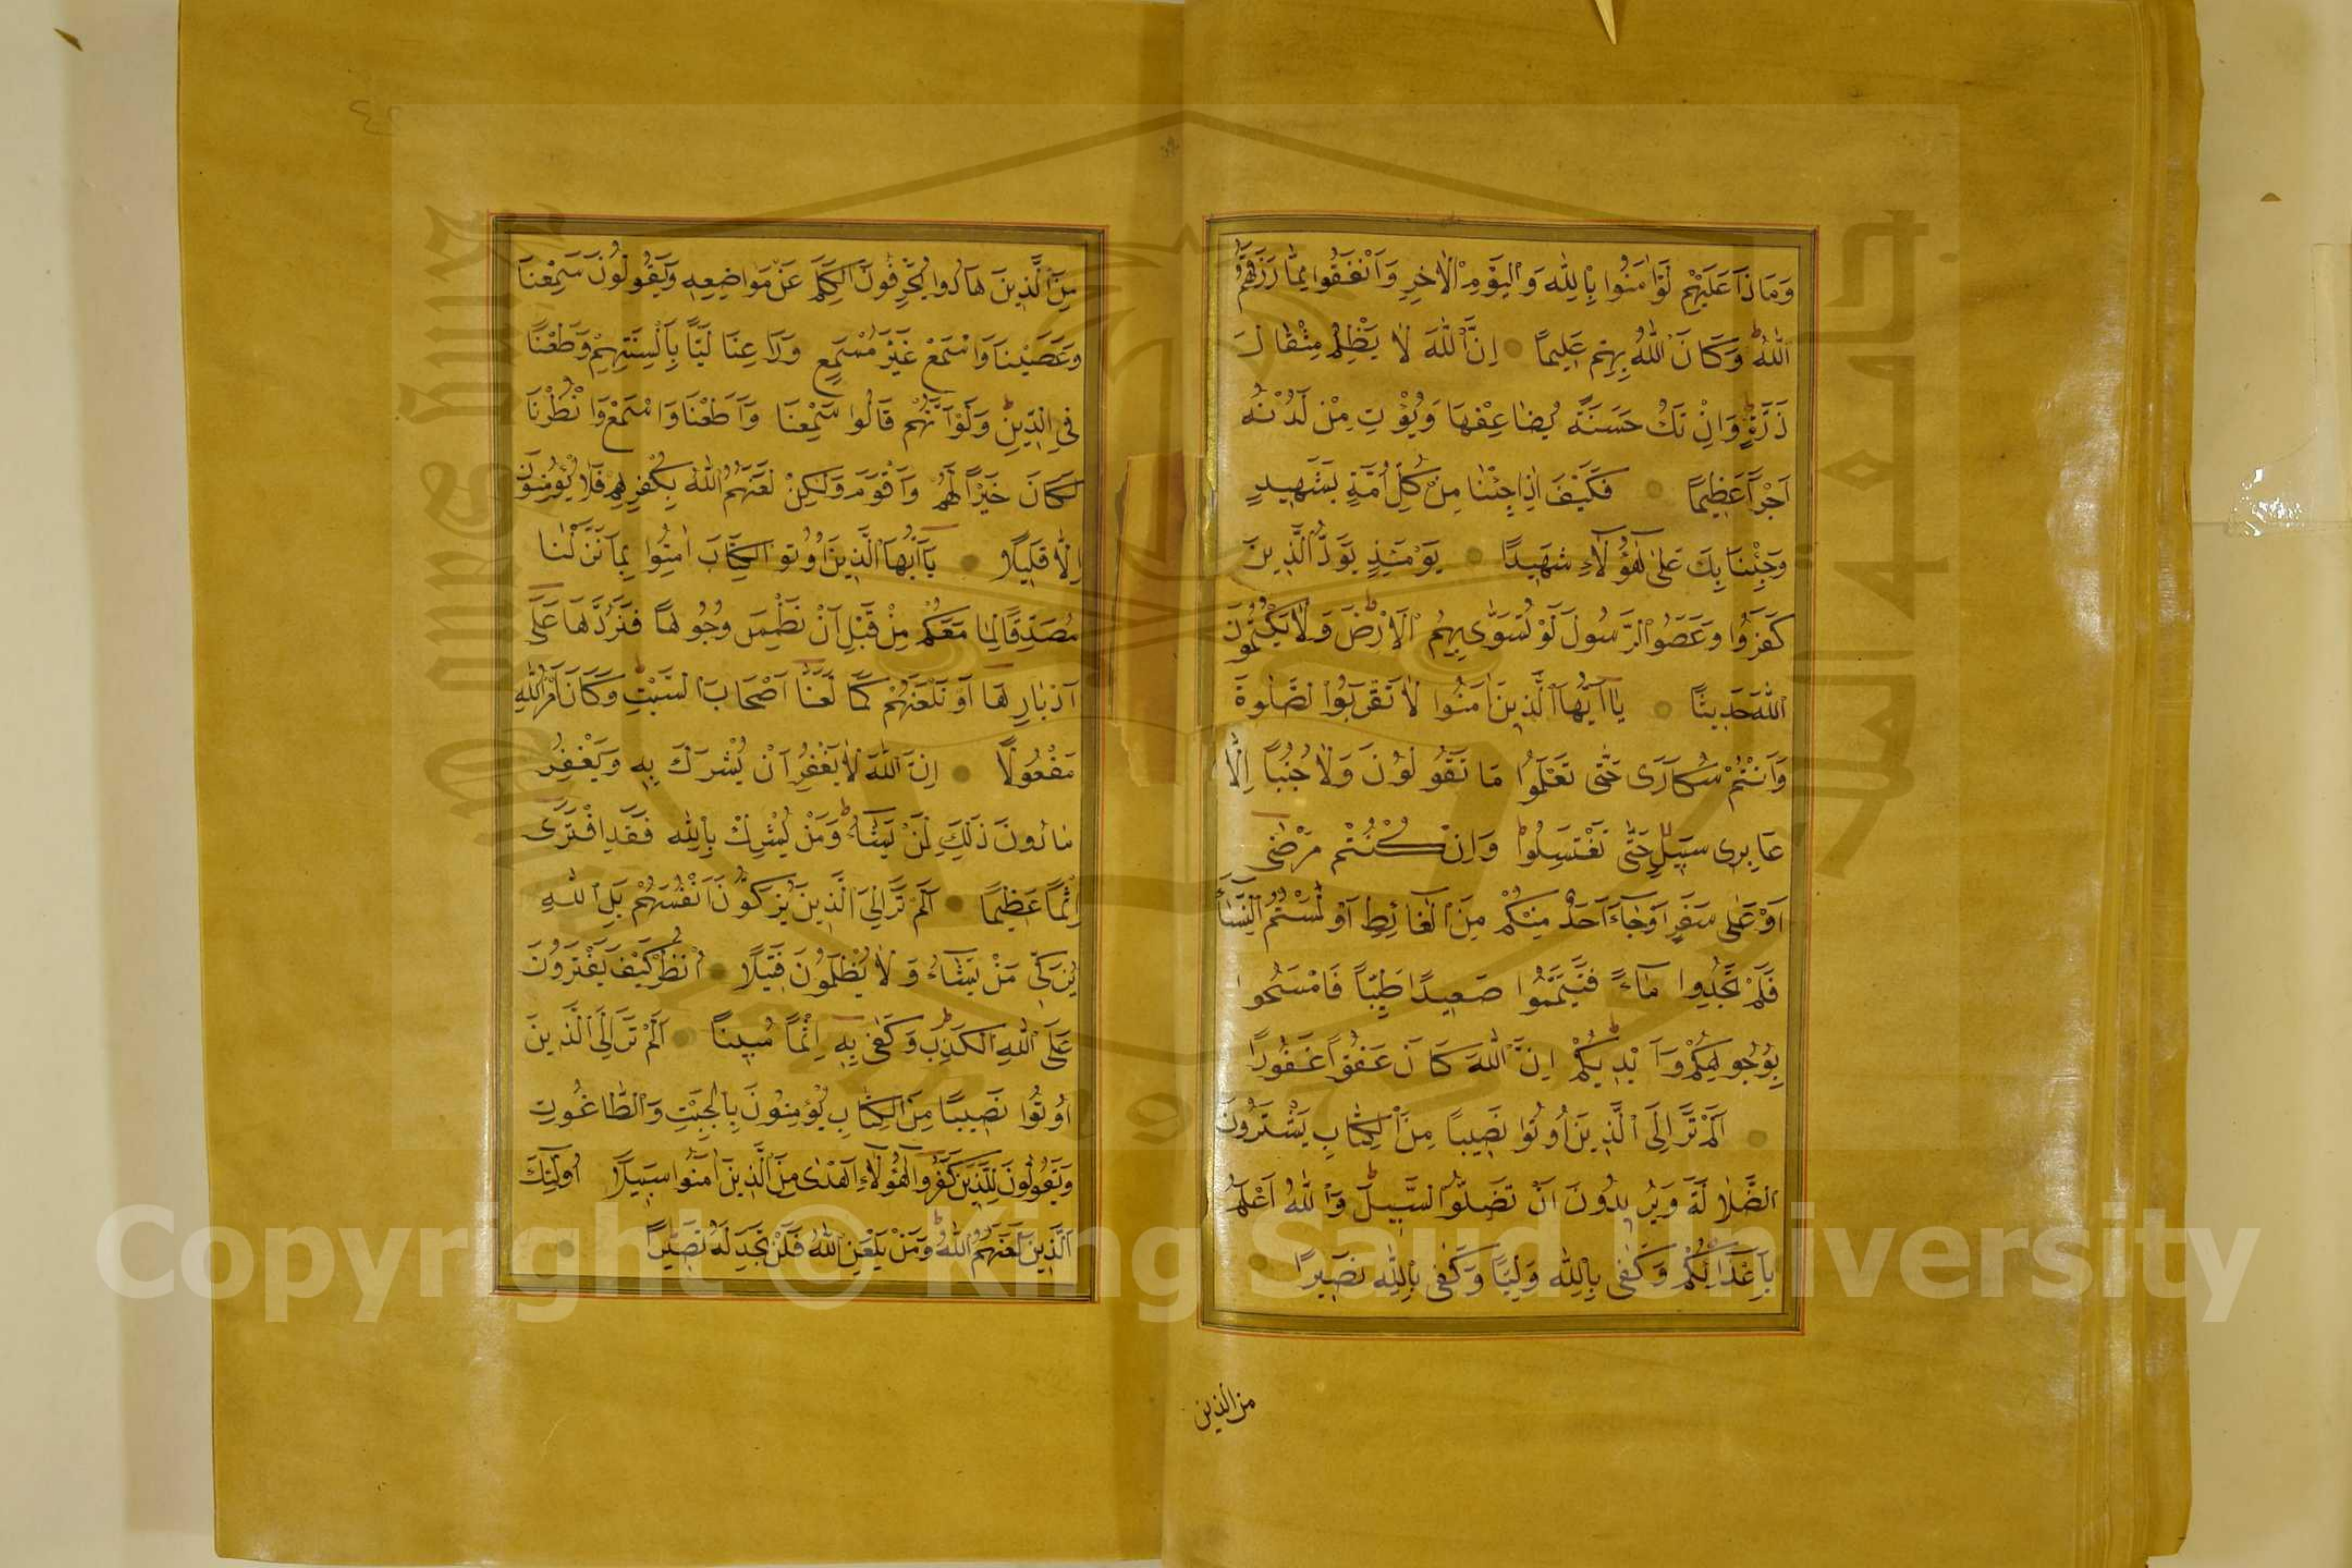 وَمَاذَا عَلَيْهِمْ لَوْ اٰمَنُوا بِاللّٰهِ وَالْيَوْمِ الْاٰخِرِ وَاَنْفَقُوا مِمَّا رَزَقَهُمُ
اللّٰهُ وَكَانَ اللّٰهُ بِهِمْ عَلِيمًا اِنَّ اللّٰهَ لَا يَظْلِمُ مِثْقَالَ
ذَرَّةٍ وَاِنْ تَكُ حَسَنَةً يُضَاعِفْهَا وَيُؤْتِ مِنْ لَدُنْهُ
اَجْرًا عَظِيمًا فَكَيْفَ اِذَا جِئْنَا مِنْ كُلِّ اُمَّةٍ بِشَهِيدٍ
وَجِئْنَا بِكَ عَلٰى هٰؤُلَاءِ شَهِيدًا يَوْمَئِذٍ يَوَدُّ الَّذِينَ
كَفَرُوا وَعَصَوُا الرَّسُولَ لَوْ تُسَوّٰى بِهِمُ الْاَرْضُ وَلَا يَكْتُمُونَ
اللّٰهَ حَدِيثًا يَا اَيُّهَا الَّذِينَ اٰمَنُوا لَا تَقْرَبُوا الصَّلٰوةَ
وَاَنْتُمْ سُكَارٰى حَتّٰى تَعْلَمُوا مَا تَقُولُونَ وَلَا جُنُبًا اِلَّا
عَابِرِى سَبِيلٍ حَتّٰى تَغْتَسِلُوا وَاِنْ كُنْتُمْ مَرْضٰى
اَوْ عَلٰى سَفَرٍ اَوْ جَاءَ اَحَدٌ مِنْكُمْ مِنَ الْغَائِطِ اَوْ لٰمَسْتُمُ النِّسَاءَ
فَلَمْ تَجِدُوا مَاءً فَتَيَمَّمُوا صَعِيدًا طَيِّبًا فَامْسَحُوا
بِوُجُوهِكُمْ وَاَيْدِيكُمْ اِنَّ اللّٰهَ كَانَ عَفُوًّا غَفُورًا
اَلَمْ تَرَ اِلَى الَّذِينَ اُوتُوا نَصِيبًا مِنَ الْكِتَابِ يَشْتَرُونَ
الضَّلَالَةَ وَيُرِيدُونَ اَنْ تَضِلُّوا السَّبِيلَ وَاللّٰهُ اَعْلَمُ
بِاَعْدَائِكُمْ وَكَفٰى بِاللّٰهِ وَلِيًّا وَكَفٰى بِاللّٰهِ نَصِيرًا
من الذين
مِنَ الَّذِينَ هَادُوا يُحَرِّفُونَ الْكَلِمَ عَنْ مَوَاضِعِهِ وَيَقُولُونَ سَمِعْنَا
وَعَصَيْنَا وَاسْمَعْ غَيْرَ مُسْمَعٍ وَرَاعِنَا لَيًّا بِاَلْسِنَتِهِمْ وَطَعْنًا
فِى الدِّينِ وَلَوْ اَنَّهُمْ قَالُوا سَمِعْنَا وَاَطَعْنَا وَاسْمَعْ وَانْظُرْنَا
لَكَانَ خَيْرًا لَهُمْ وَاَقْوَمَ وَلٰكِنْ لَعَنَهُمُ اللّٰهُ بِكُفْرِهِمْ فَلَا يُؤْمِنُونَ
اِلَّا قَلِيلًا يَا اَيُّهَا الَّذِينَ اُوتُوا الْكِتَابَ اٰمِنُوا بِمَا نَزَّلْنَا
مُصَدِّقًا لِمَا مَعَكُمْ مِنْ قَبْلِ اَنْ نَطْمِسَ وُجُوهًا فَنَرُدَّهَا عَلٰى
اَدْبَارِهَا اَوْ نَلْعَنَهُمْ كَمَا لَعَنَّا اَصْحَابَ السَّبْتِ وَكَانَ اَمْرُ اللّٰهِ
مَفْعُولًا اِنَّ اللّٰهَ لَا يَغْفِرُ اَنْ يُشْرَكَ بِهِ وَيَغْفِرُ
مَا دُونَ ذٰلِكَ لِمَنْ يَشَاءُ وَمَنْ يُشْرِكْ بِاللّٰهِ فَقَدِ افْتَرٰى
اِثْمًا عَظِيمًا اَلَمْ تَرَ اِلَى الَّذِينَ يُزَكُّونَ اَنْفُسَهُمْ بَلِ اللّٰهُ
يُزَكِّى مَنْ يَشَاءُ وَلَا يُظْلَمُونَ فَتِيلًا اُنْظُرْ كَيْفَ يَفْتَرُونَ
عَلَى اللّٰهِ الْكَذِبَ وَكَفٰى بِهِ اِثْمًا مُبِينًا اَلَمْ تَرَ اِلَى الَّذِينَ
اُوتُوا نَصِيبًا مِنَ الْكِتَابِ يُؤْمِنُونَ بِالْجِبْتِ وَالطَّاغُوتِ
وَيَقُولُونَ لِلَّذِينَ كَفَرُوا هٰؤُلَاءِ اَهْدٰى مِنَ الَّذِينَ اٰمَنُوا سَبِيلًا اُولٰئِكَ
الَّذِينَ لَعَنَهُمُ اللّٰهُ وَمَنْ يَلْعَنِ اللّٰهُ فَلَنْ تَجِدَ لَهُ نَصِيرًا
Copyright © King Saud University